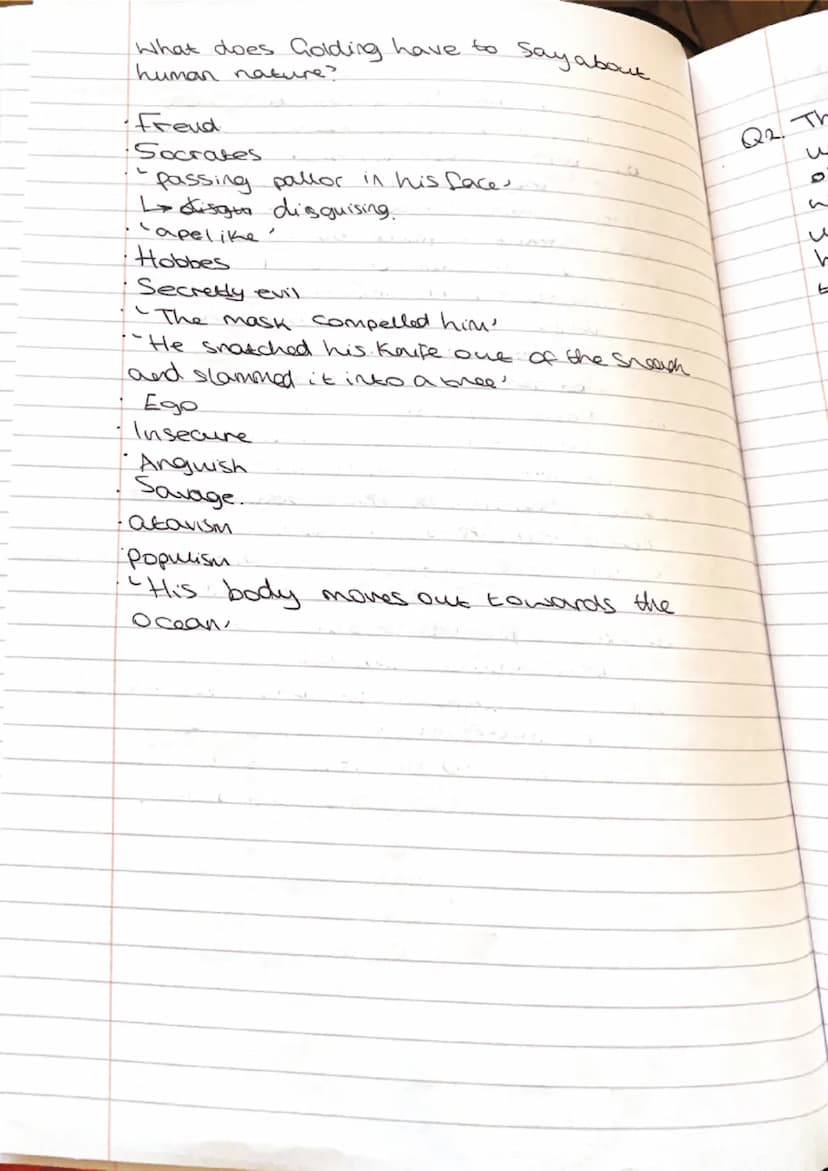 What does Golding have to say about
human nature?
· Freud
· Socrates
· 'passing pallor in his face'
↳ disguising.
· 'apelike'
· Hobbes
· Secretly evil
· 'The mask compelled him'
· 'He snatched his knife out of the sheath
and slammed it into a tree'
· Ego
· Insecure
· Anguish
· Savage.
· atavism
· populism
'His body moves out towards the
Ocean'
Q2. Th